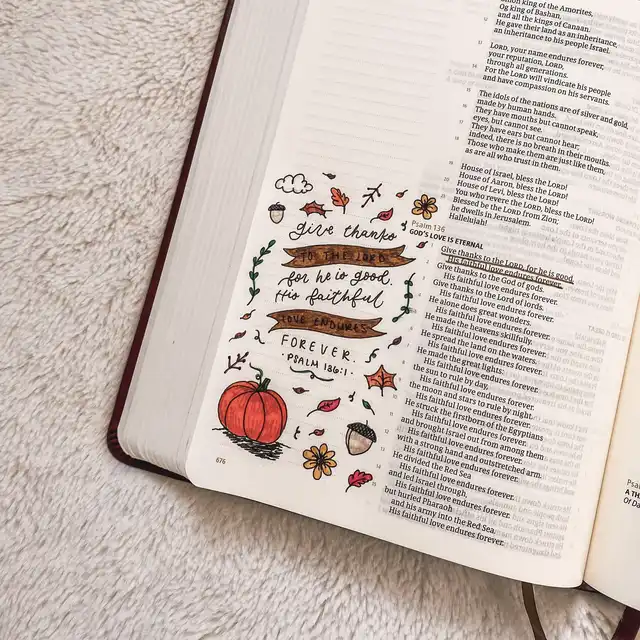 give thanks
TO THE LORD
for he is good.
His faithful
LOVE ENDURES
FOREVER.
·PSALM 136:1·
676
Sihon king of the Amorites,
Og king of Bashan,
and all the kings of Canaan.
12 He gave their land as an inheritance,
an inheritance to his people Israel.
13 LORD, your name endures forever,
your reputation, LORD,
through all generations.
14 For the LORD will vindicate his people
and have compassion on his servants.
15 The idols of the nations are of silver and gold,
made by human hands.
16 They have mouths but cannot speak,
eyes, but cannot see.
17 They have ears but cannot hear;
indeed, there is no breath in their mouths.
18 Those who make them are just like them,
as are all who trust in them.
19 House of Israel, bless the LORD!
House of Aaron, bless the LORD!
20 House of Levi, bless the LORD!
You who revere the LORD, bless the LORD!
21 Blessed be the LORD from Zion;
he dwells in Jerusalem.
Hallelujah!
Psalm 136
GOD'S LOVE IS ETERNAL
1 Give thanks to the LORD, for he is good.
His faithful love endures forever.
2 Give thanks to the God of gods.
His faithful love endures forever.
3 Give thanks to the Lord of lords.
His faithful love endures forever.
4 He alone does great wonders.
His faithful love endures forever.
5 He made the heavens skillfully.
His faithful love endures forever.
6 He spread the land on the waters.
His faithful love endures forever.
7 He made the great lights:
His faithful love endures forever.
8 the sun to rule by day,
His faithful love endures forever.
9 the moon and stars to rule by night.
His faithful love endures forever.
10 He struck the firstborn of the Egyptians
His faithful love endures forever.
11 and brought Israel out from among them
His faithful love endures forever.
12 with a strong hand and outstretched arm.
His faithful love endures forever.
13 He divided the Red Sea
His faithful love endures forever.
14 and led Israel through,
His faithful love endures forever.
15 but hurled Pharaoh
and his army into the Red Sea.
His faithful love endures forever.
Psa
A TH
Of Da